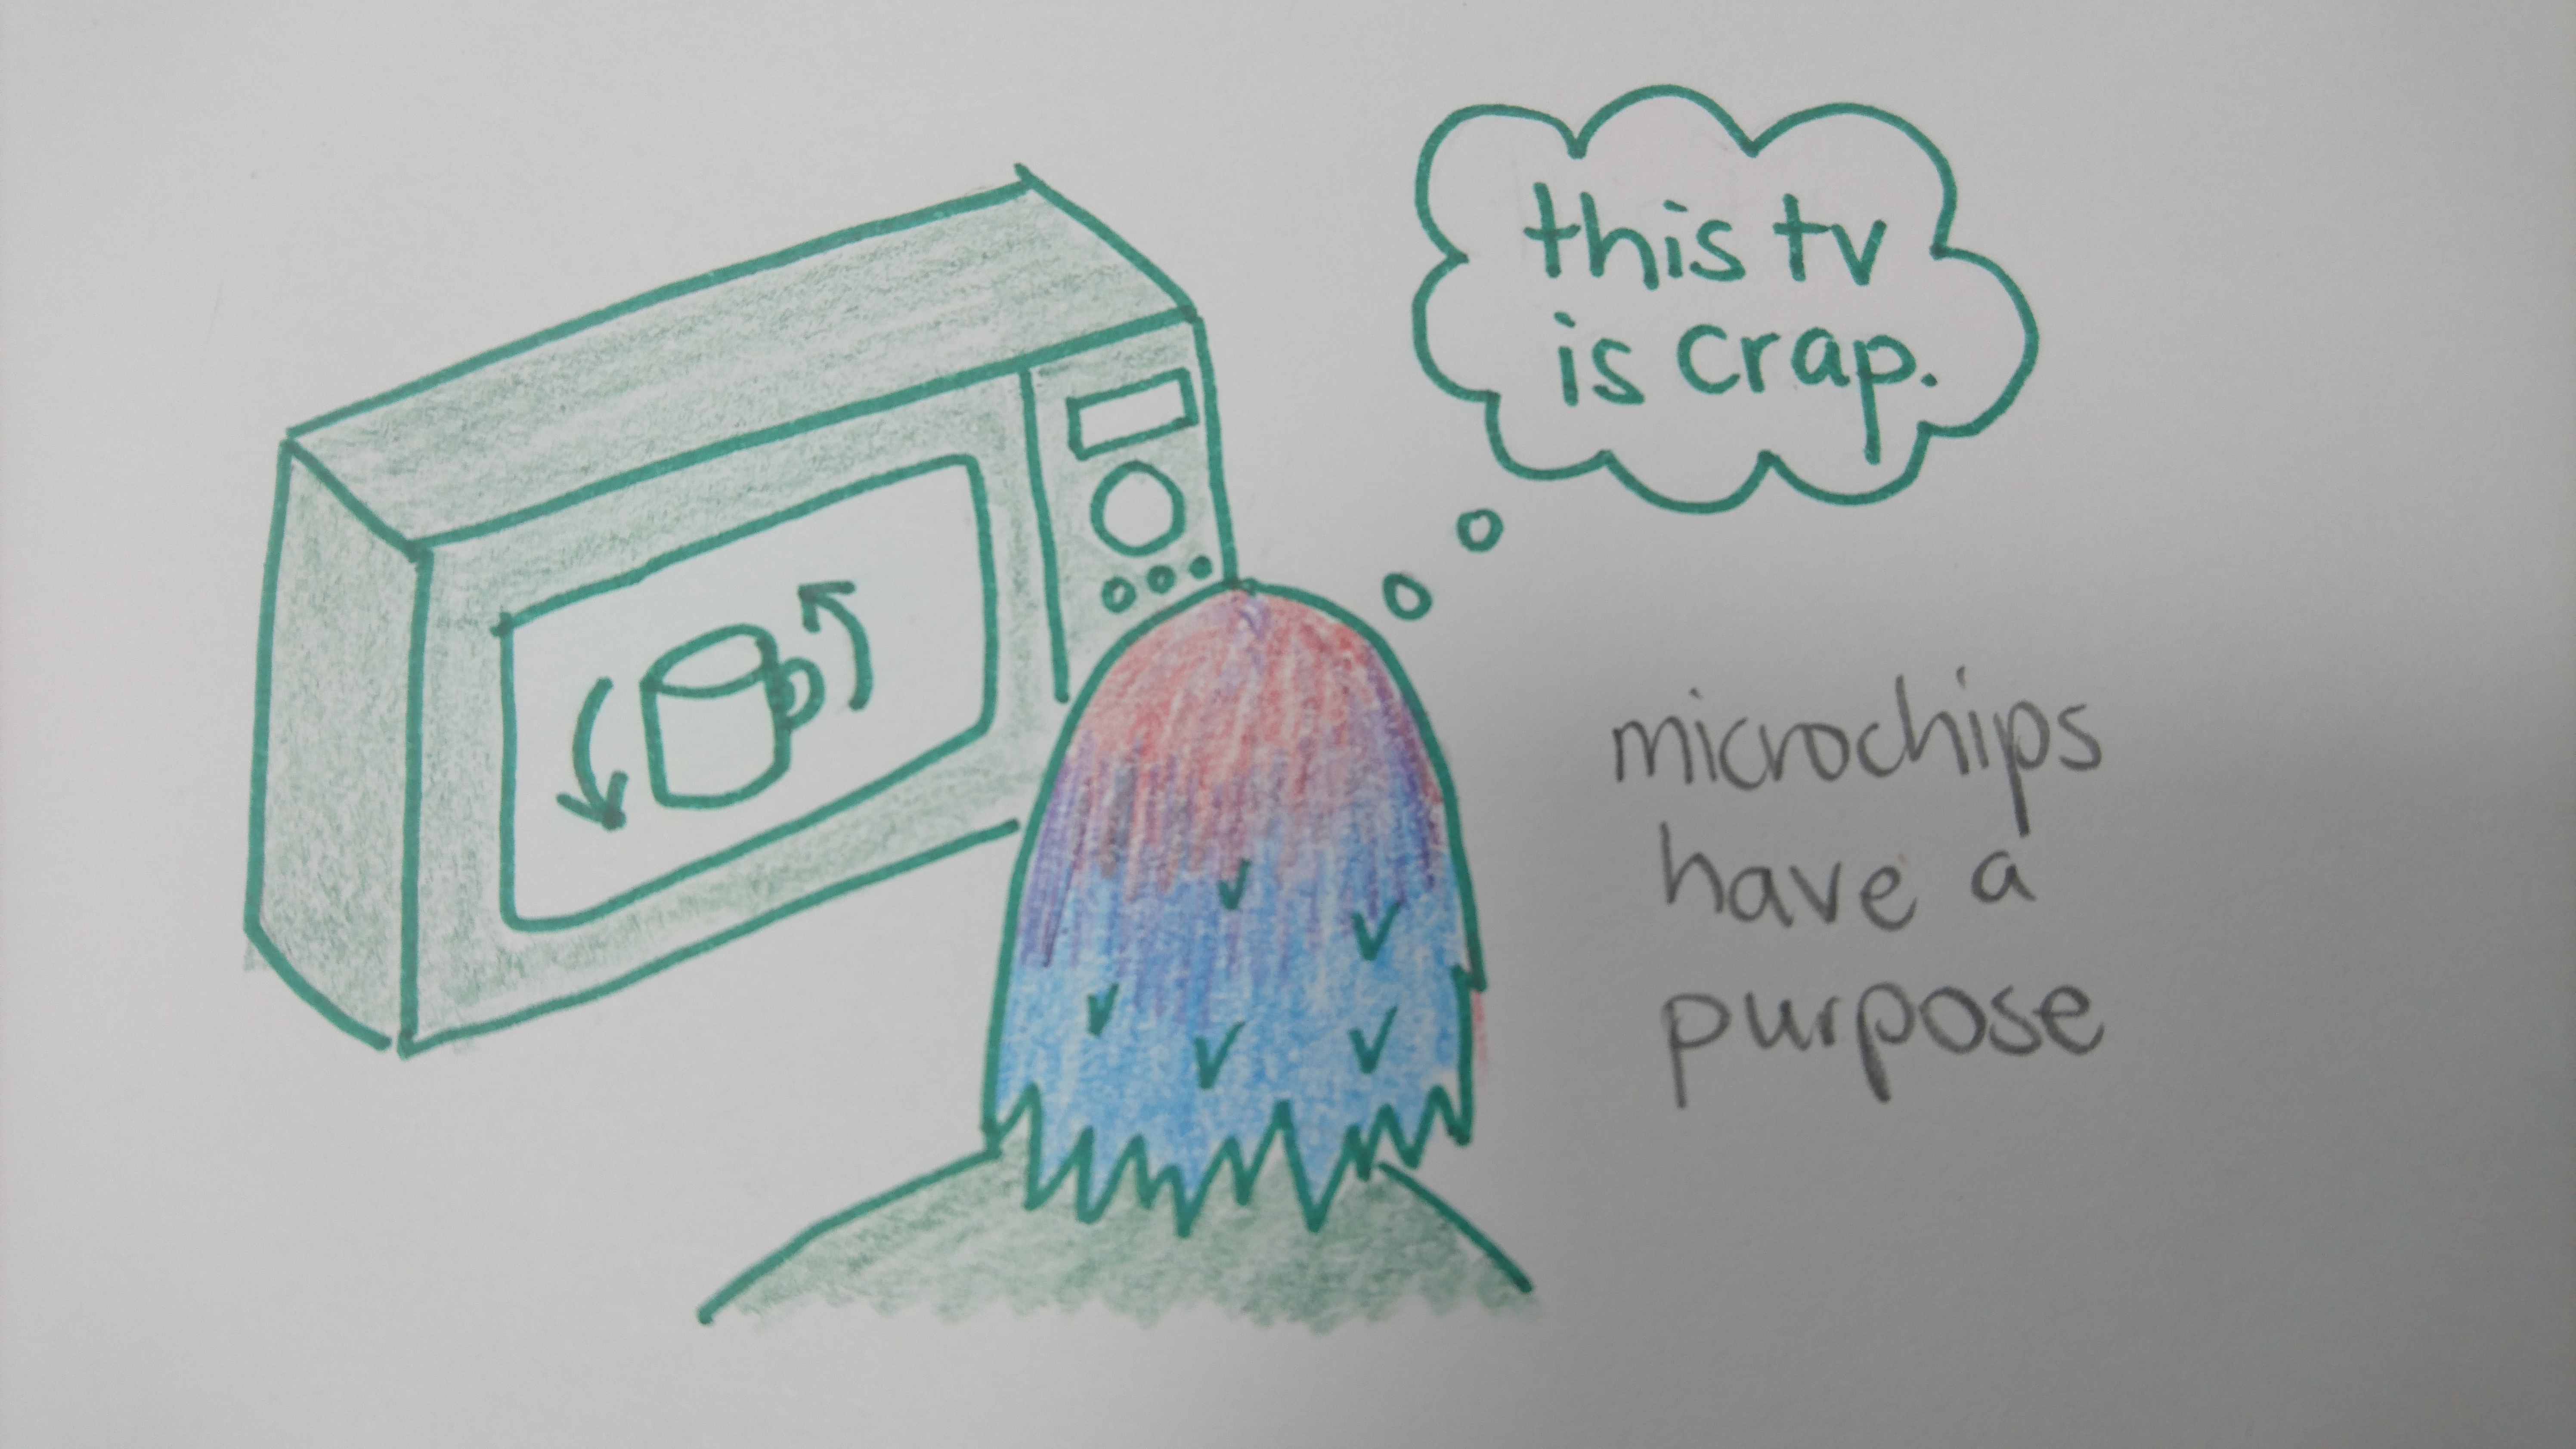 this tv
is crap.
microchips
have a
purpose